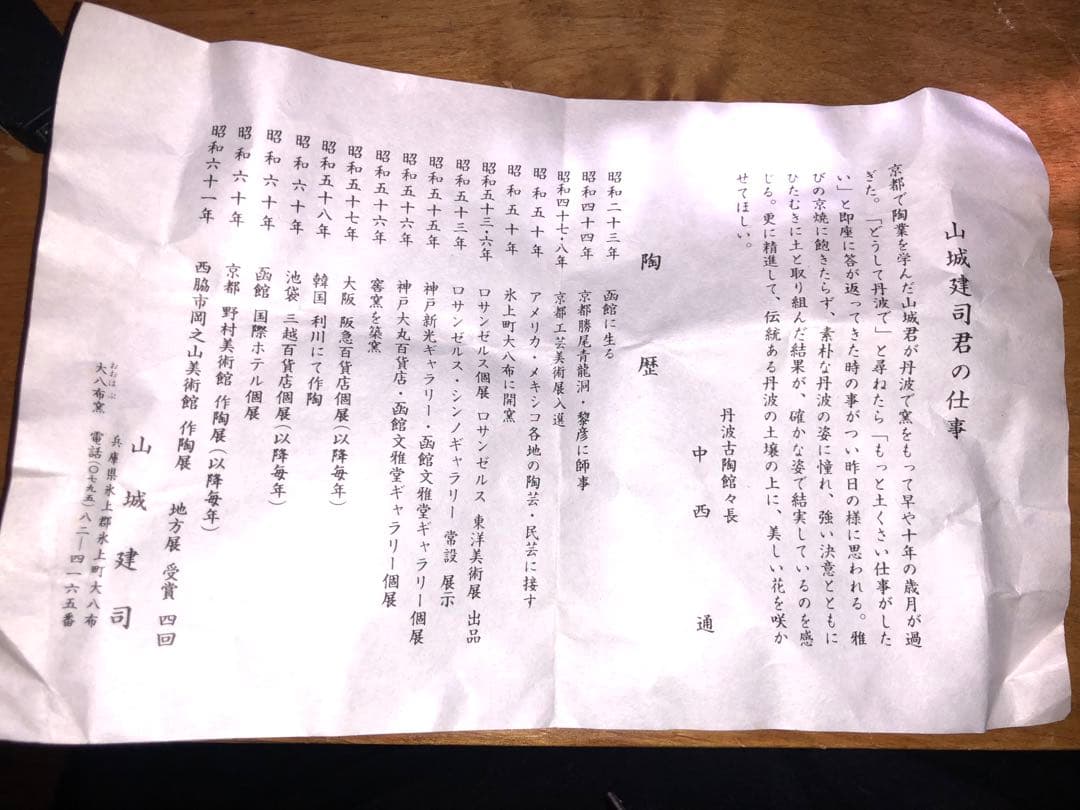 山城建司君の仕事
京都で陶業を学んだ山城君が丹波で窯をもって早や十年の歳月が過
ぎた。「どうして丹波で」と尋ねたら「もっと土くさい仕事がした
い」と即座に答が返ってきた時の事がつい昨日の様に思われる。雅
びの京焼に飽きたらず、素朴な丹波の姿に憧れ、強い決意とともに
ひたむきに土と取り組んだ結果が、確かな姿で結実しているのを感
じる。更に精進して、伝統ある丹波の土壌の上に、美しい花を咲か
せてほしい。
丹波古陶館々長
中西 通
陶歴
昭和二十三年 函館に生る
昭和四十四年 京都勝尾青龍洞・黎彦に師事
昭和四十七・八年 京都工芸美術展入選
昭和五十年 アメリカ・メキシコ各地の陶芸・民芸に接す
昭和五十年 氷上町大八布に開窯
昭和五十三・六年 ロサンゼルス個展 ロサンゼルス 東洋美術展 出品
昭和五十三年 ロサンゼルス・シンノギャラリー 常設 展示
昭和五十五年 神戸新光ギャラリー・函館文雅堂ギャラリー個展
昭和五十六年 神戸大丸百貨店・函館文雅堂ギャラリー個展
昭和五十六年 窖窯を築窯
昭和五十七年 大阪 阪急百貨店個展(以降毎年)
昭和五十八年 韓国 利川にて作陶
昭和六十年 池袋 三越百貨店個展(以降毎年)
昭和六十年 函館 国際ホテル個展
昭和六十年 京都 野村美術館 作陶展(以降毎年)
昭和六十一年 西脇市岡之山美術館 作陶展
地方展 受賞 四回
山城建司
兵庫県氷上郡氷上町大八布
おおはぶ
大八布窯 電話(〇七九五)八二―四一六五番